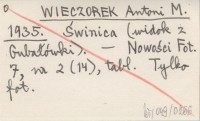 WIECZOREK Antoni M.
1935. Świnica (widok z
Gubałówki). — Nowości Fot.
7, na 2 (14), tabl. Tylko
fot.